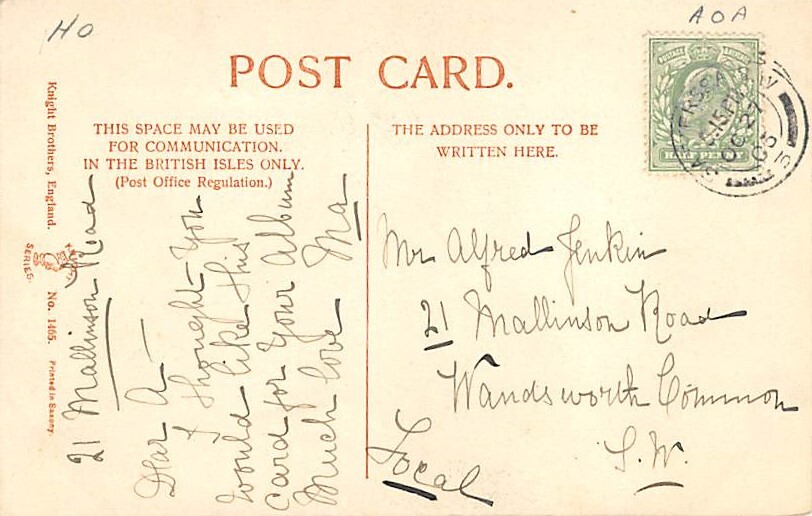 HO
AOA
POST CARD.
THIS SPACE MAY BE USED
FOR COMMUNICATION.
IN THE BRITISH ISLES ONLY.
(Post Office Regulation.)
THE ADDRESS ONLY TO BE
WRITTEN HERE.
Knight Brothers, England.
SERIES.
No. 1465.
Printed in Saxony.
HALF PENNY
S.W
OC 27
05
21 Mallinson Road
Dear A—
I thought you
would like this
card for your album
Much love Ma
Mr Alfred Jenkin
21 Mallinson Road
Wandsworth Common
S.W.
Local